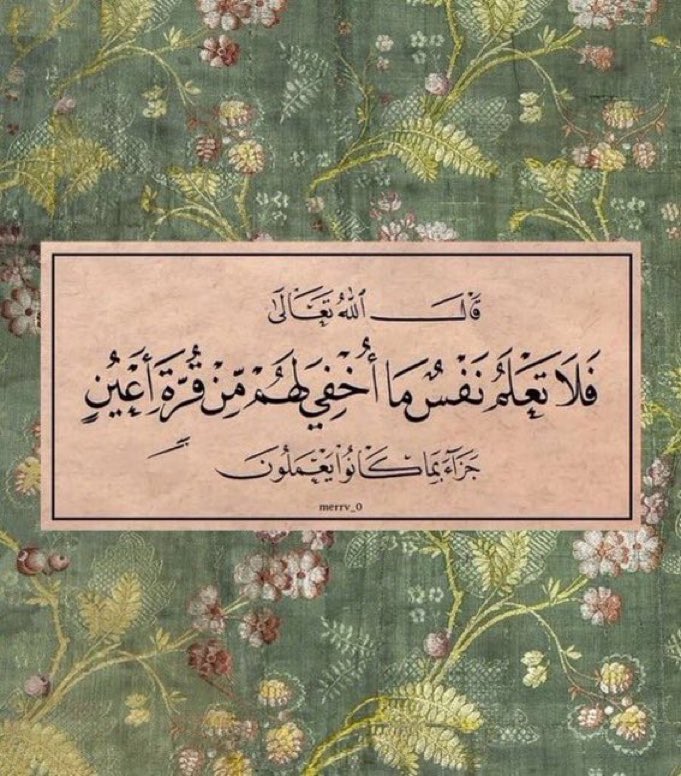 قَالَ اللهُ تَعَالَىٰ
فَلَا تَعْلَمُ نَفْسٌ مَا أُخْفِيَ لَهُمْ مِّنْ قُرَّةِ أَعْيُنٍ
جَزَآءً بِمَا كَانُوا۟ يَعْمَلُونَ
merrv_0